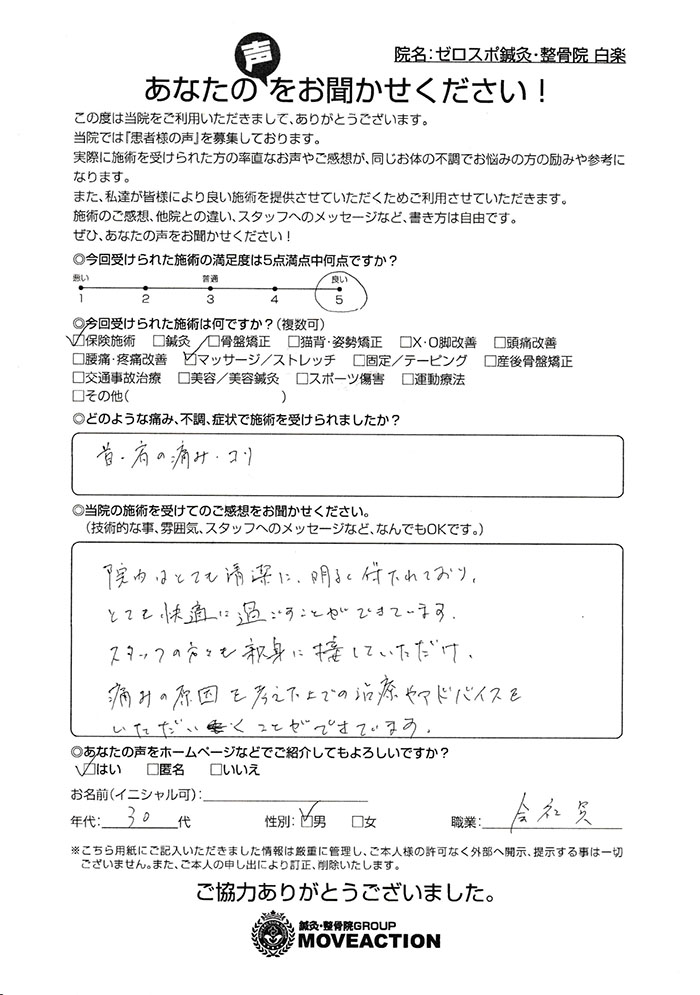 院名：ゼロスポ鍼灸・整骨院 白楽
あなたの声をお聞かせください！
この度は当院をご利用いただきまして、ありがとうございます。
当院では『患者様の声』を募集しております。
実際に施術を受けられた方の率直なお声やご感想が、同じお体の不調でお悩みの方の励みや参考に
なります。
また、私達が皆様により良い施術を提供させていただくためご利用させていただきます。
施術のご感想、他院との違い、スタッフへのメッセージなど、書き方は自由です。
ぜひ、あなたの声をお聞かせください！
◎今回受けられた施術の満足度は5点満点中何点ですか？
悪い 普通 良い
1 2 3 4 5
◎今回受けられた施術は何ですか？（複数可）
☑保険施術 □鍼灸 □骨盤矯正 □猫背・姿勢矯正 □X・O脚改善 □頭痛改善
□腰痛・疼痛改善 ☑マッサージ／ストレッチ □固定／テーピング □産後骨盤矯正
□交通事故治療 □美容／美容鍼灸 □スポーツ傷害 □運動療法
□その他（ ）
◎どのような痛み、不調、症状で施術を受けられましたか？
首・肩の痛み・コリ
◎当院の施術を受けてのご感想をお聞かせください。
（技術的な事、雰囲気、スタッフへのメッセージなど、なんでもOKです。）
院内はとても清潔に、明るく付たれており、
とても快適に過ごすことができています。
スタッフの方々も親身に接していただけ、
痛みの原因を考えた上での治療やアドバイスを
いただいくことができています。
◎あなたの声をホームページなどでご紹介してもよろしいですか？
☑はい □匿名 □いいえ
お名前（イニシャル可）：
年代： 30 代 性別：☑男 □女 職業： 会社員
※こちら用紙にご記入いただきました情報は厳重に管理し、ご本人様の許可なく外部へ開示、提示する事は一切
ございません。また、ご本人の申し出により訂正、削除いたします。
ご協力ありがとうございました。
鍼灸・整骨院GROUP
MOVEACTION